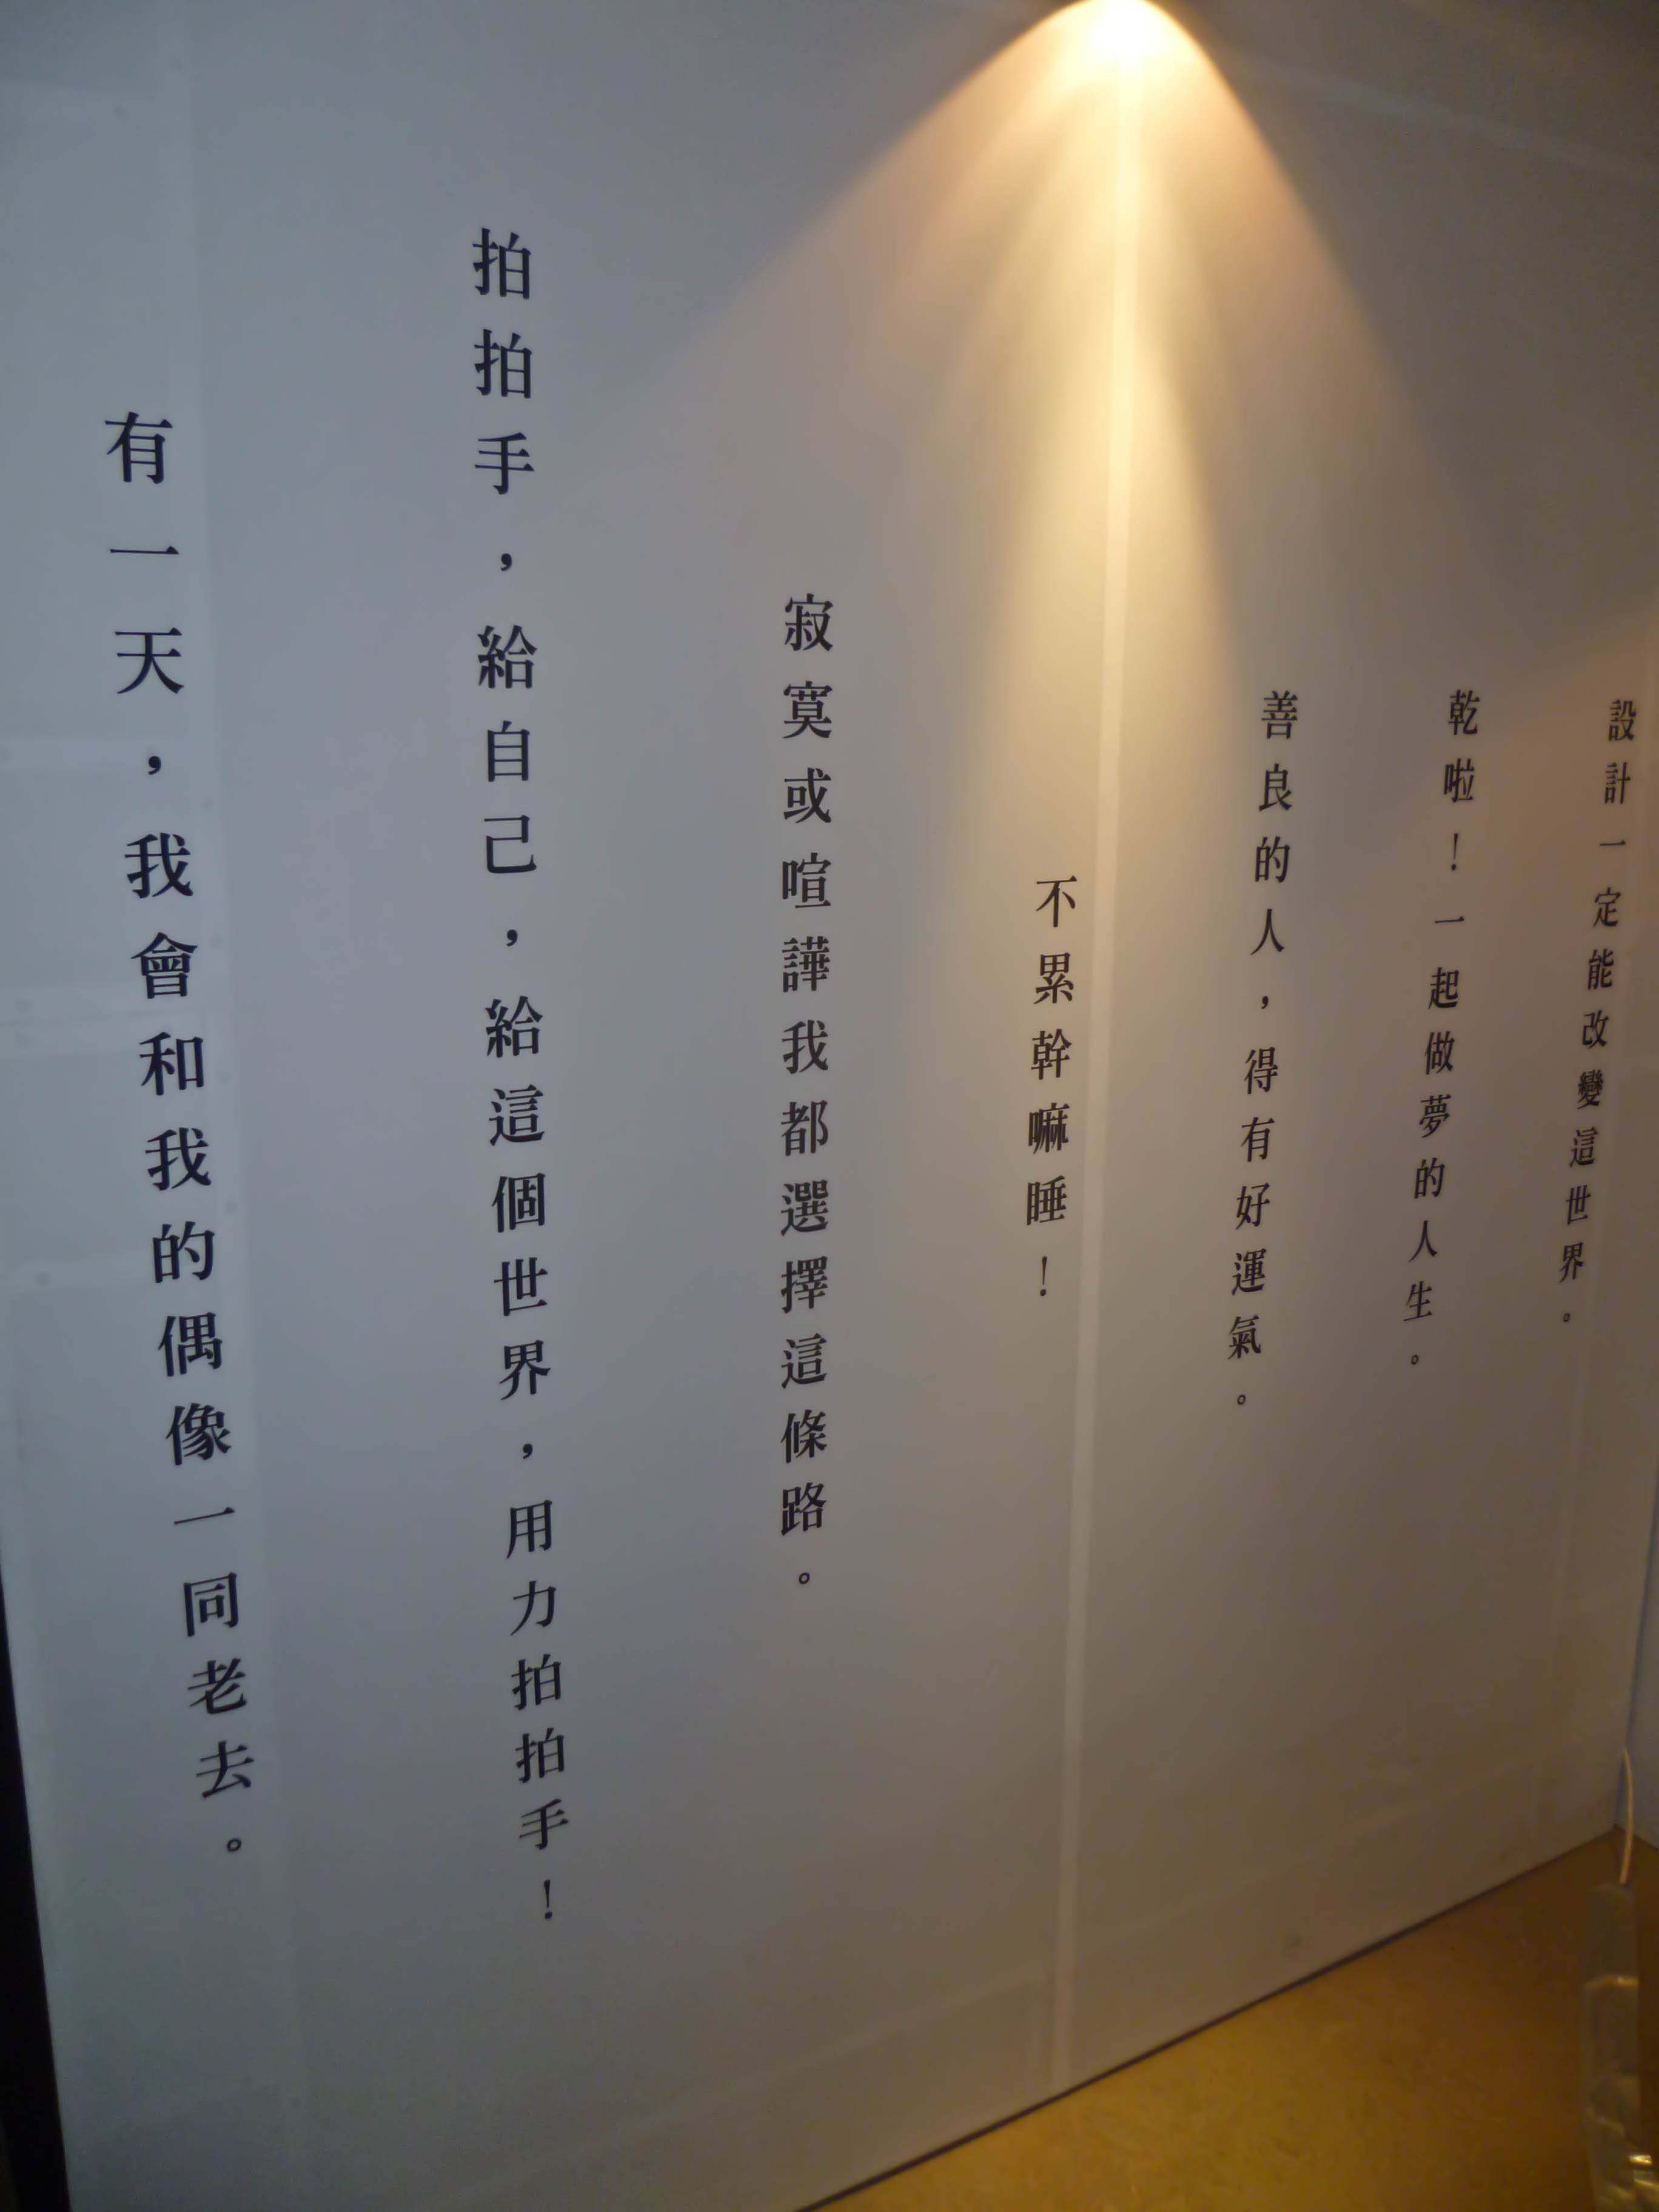 設計一定能改變這世界。
乾啦！一起做夢的人生。
善良的人，得有好運氣。
不累幹嘛睡！
寂寞或喧譁我都選擇這條路。
拍拍手，給自己，給這個世界，用力拍拍手！
有一天，我會和我的偶像一同老去。